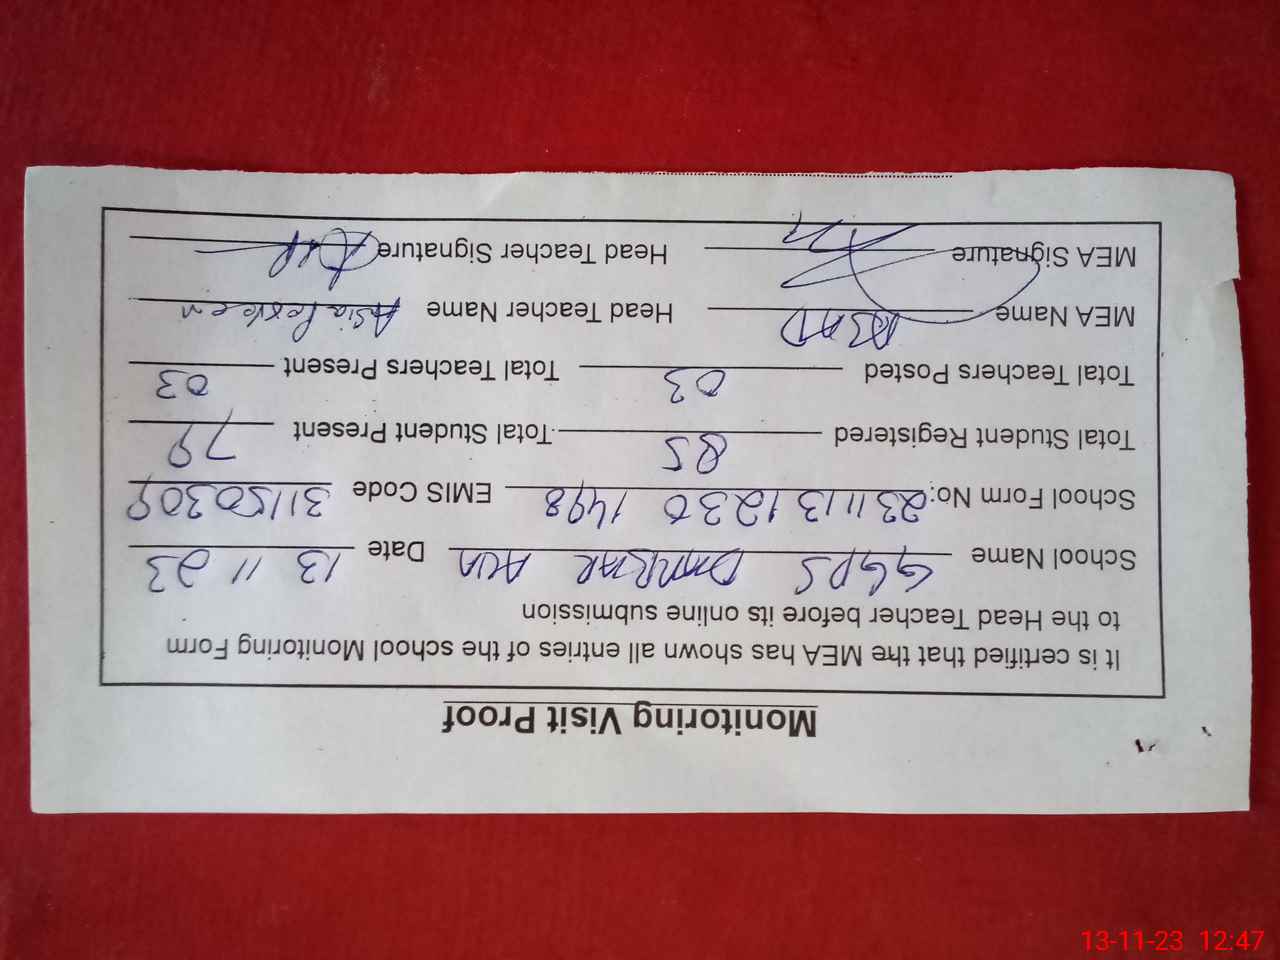 Monitoring Visit Proof
It is certified that the MEA has shown all entries of the school Monitoring Form
to the Head Teacher before its online submission
School Name GGPS DARBAR Date 13 11 23
School Form No: 231113 1230 1498 EMIS Code 31150309
Total Student Registered 85 Total Student Present 79
Total Teachers Posted 03 Total Teachers Present 03
MEA Name ASAD Head Teacher Name Asia Perveen
MEA Signature Head Teacher Signature
13-11-23 12:47